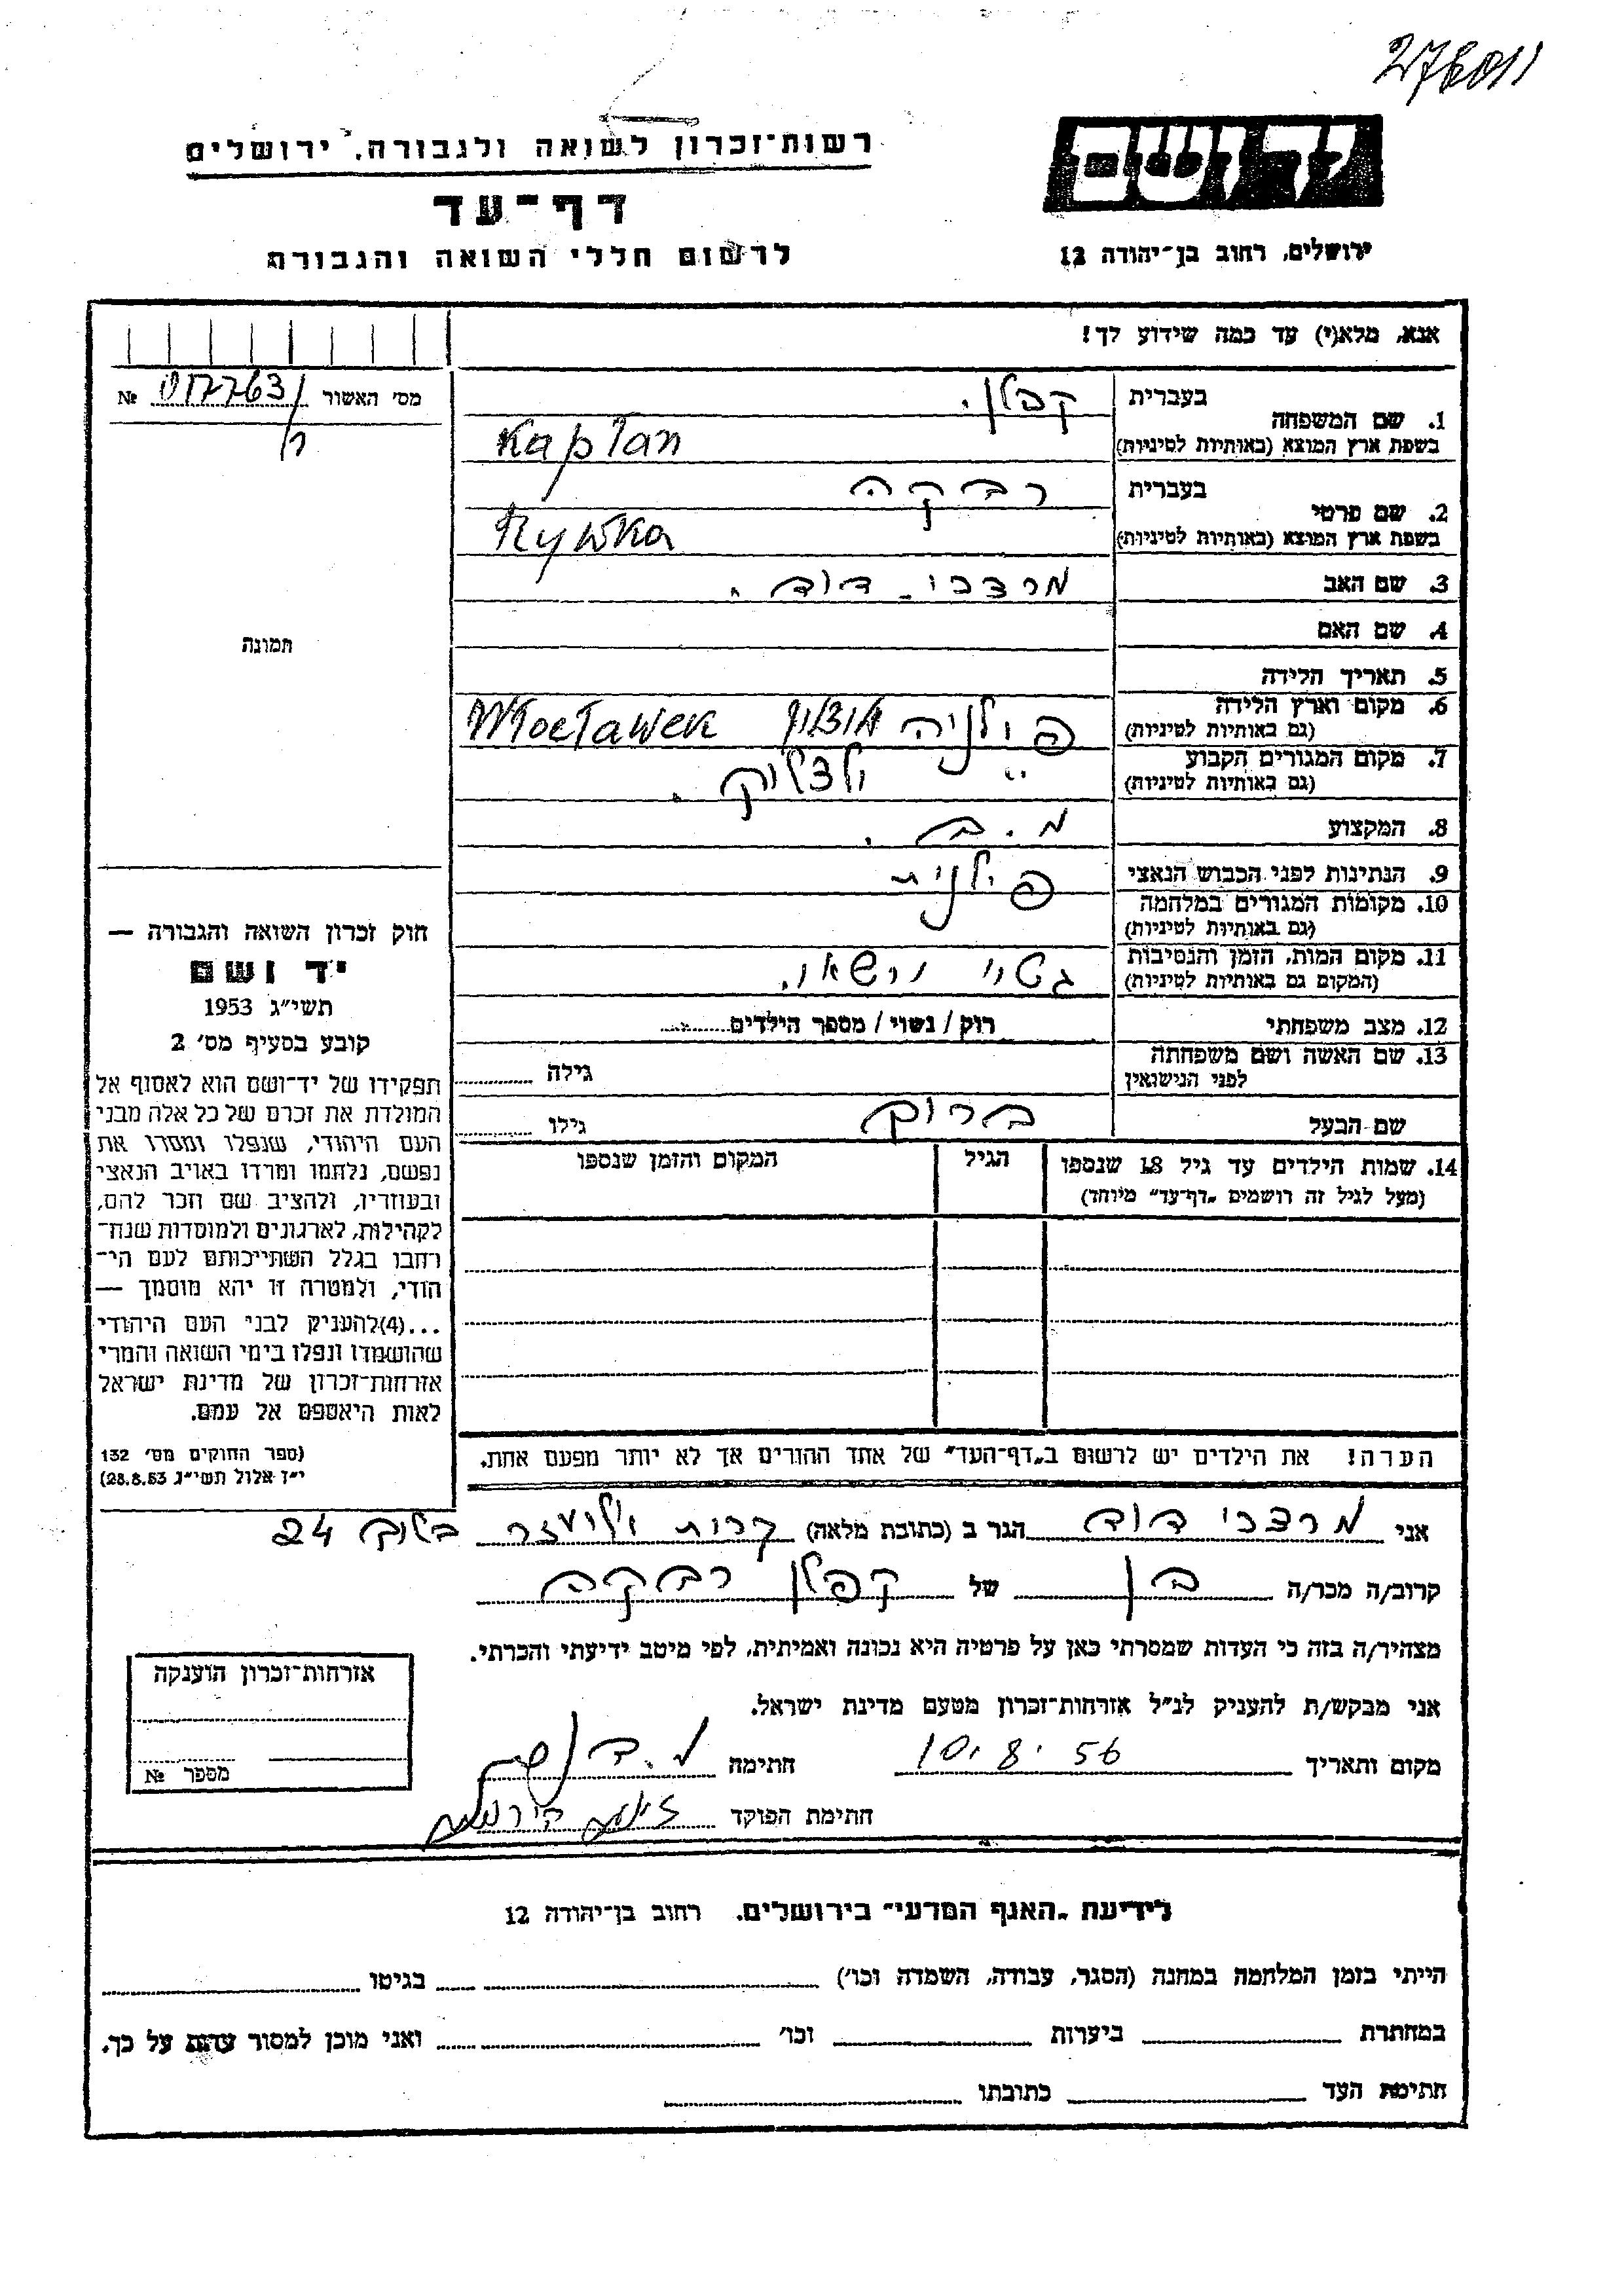 276011
ידושם
רשות־זכרון לשואה ולגבורה, ירושלים
דף־עד
לרשום חללי השואה והגבורה
ירושלים, רחוב בן־יהודה 12
אנא, מלא(י) עד כמה שידוע לך!
מס׳ האשור № 017763
תמונה
1. שם המשפחה
בעברית קפלן.
בשפת ארץ המוצא (באותיות לטיניות) Kaplan
2. שם פרטי
בעברית רבקה
בשפת ארץ המוצא (באותיות לטיניות) Rywka
3. שם האב מרדכי דוד.
4. שם האם
5. תאריך הלידה
6. מקום וארץ הלידה
(גם באותיות לטיניות) פולניה Włocławek
7. מקום המגורים הקבוע
(גם באותיות לטיניות) "
8. המקצוע מ.ב.
9. הנתינות לפני הכבוש הנאצי פולנית
10. מקומות המגורים במלחמה
(גם באותיות לטיניות)
11. מקום המות, הזמן והנסיבות
(המקום גם באותיות לטיניות) גטו ורשא.
12. מצב משפחתי רוק / נשוי / מספר הילדים
13. שם האשה ושם משפחתה
לפני הנישואין גילה
שם הבעל ברוך גילו
14. שמות הילדים עד גיל 18 שנספו הגיל המקום והזמן שנספו
(מעל לגיל זה רושמים „דף־עד” מיוחד)
הערה! את הילדים יש לרשום ב„דף־העד” של אחד ההורים אך לא יותר מפעם אחת.
חוק זכרון השואה והגבורה —
יד ושם
תשי״ג 1953
קובע בסעיף מס׳ 2
תפקידו של יד־ושם הוא לאסוף אל
המולדת את זכרם של כל אלה מבני
העם היהודי, שנפלו ומסרו את
נפשם, נלחמו ומרדו באויב הנאצי
ובעוזריו, ולהציב שם וזכר להם,
לקהילות, לארגונים ולמוסדות שנח־
רבו בגלל השתייכותם לעם הי־
הודי, ולמטרה זו יהא מוסמך —
...(4)להעניק לבני העם היהודי
שהושמדו ונפלו בימי השואה והמרי
אזרחות־זכרון של מדינת ישראל
לאות היאספם אל עמם.
(ספר החוקים מס׳ 132
י״ז אלול תשי״ג 28.8.53)
אני מרדכי דוד הגר ב (כתובת מלאה) קרית אליעזר בלוק 24
קרוב/ה מכר/ה בן של קפלן רבקה
מצהיר/ה בזה כי העדות שמסרתי כאן על פרטיה היא נכונה ואמיתית, לפי מיטב ידיעתי והכרתי.
אני מבקש/ת להעניק לנ״ל אזרחות־זכרון מטעם מדינת ישראל.
מקום ותאריך 10.8.56 חתימה
חתימת הפוקד
אזרחות־זכרון הוענקה
מספר №
לידיעת „האגף המדעי” בירושלים. רחוב בן־יהודה 12
הייתי בזמן המלחמה במחנה (הסגר, עבודה, השמדה וכו׳) בגיטו
במחתרת ביערות וכו׳ ואני מוכן למסור עדות על כך.
חתימת העד כתובתו